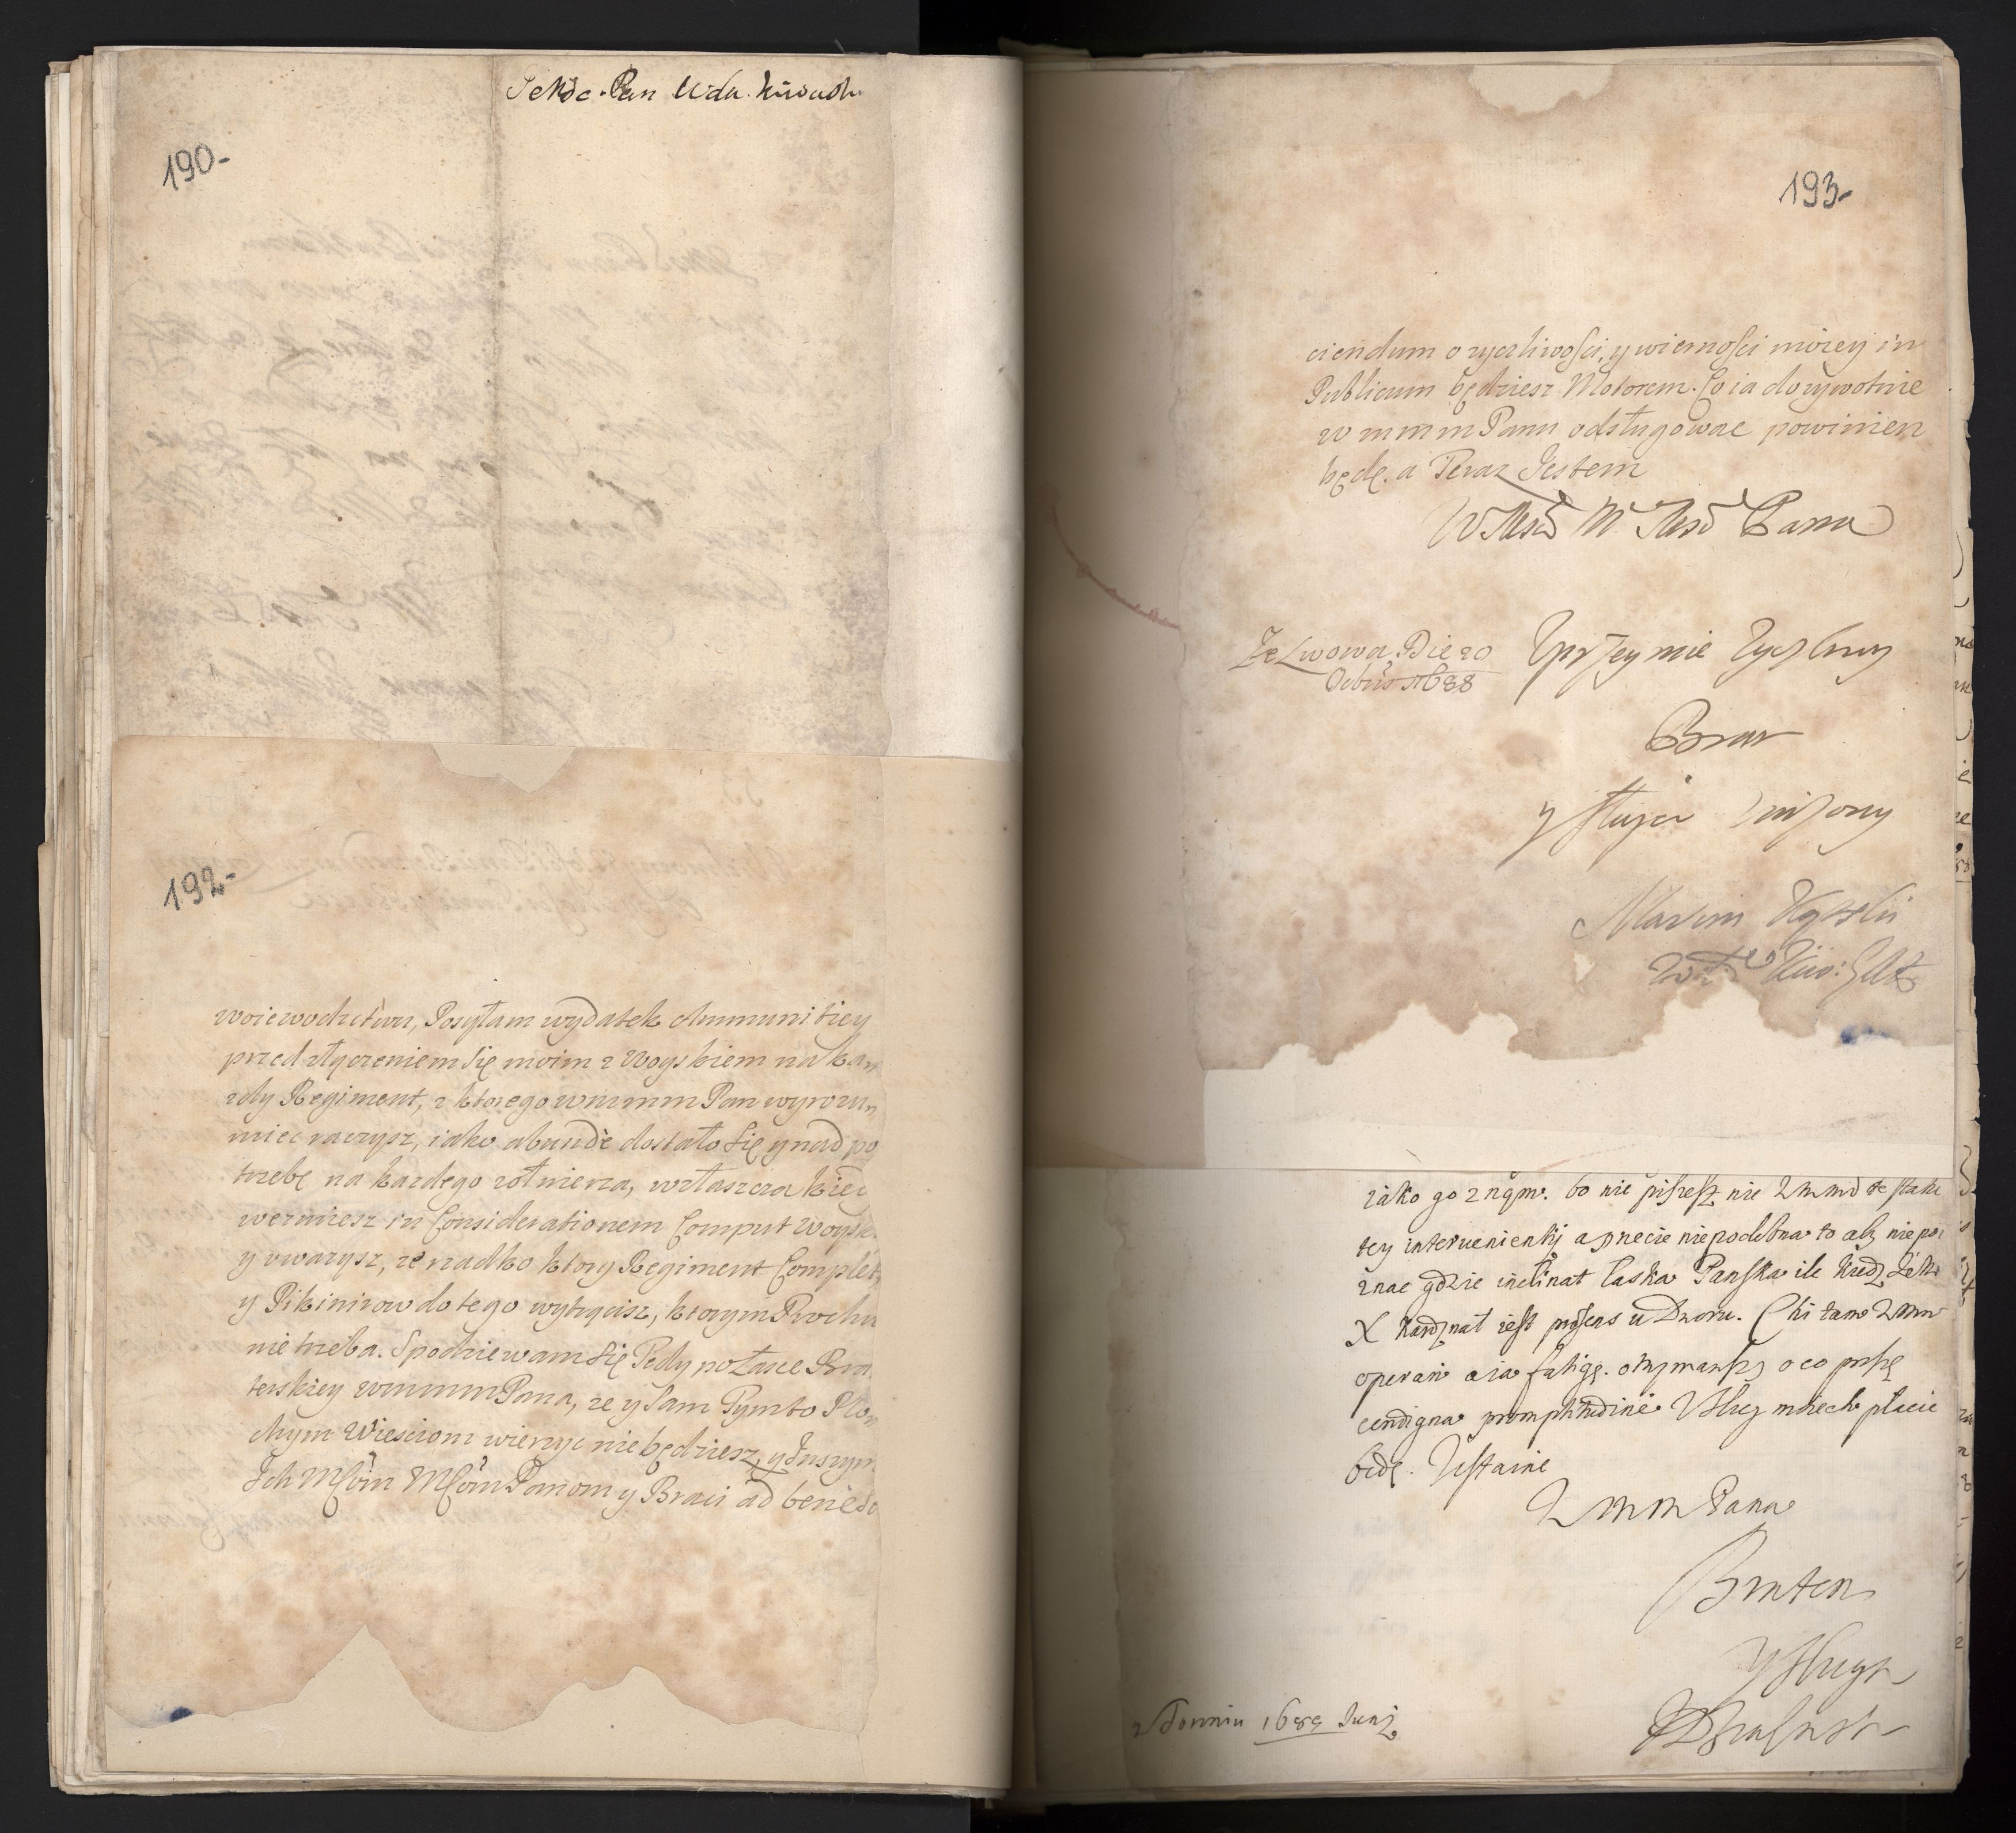 JeMść Pan Wda. Kiiowski
190-
192-
woiewodztwu, Posyłam wydatek Ammunitiey
przed złączeniem się moim z Woyskiem na każ
zdy Regiment, z ktorego wmmm Pan wyrozu
miec raczysz, iako abunde dostało się y nad po
trzebę na kazdego zołnierza, właszcza kiedy
wezmiesz in Considerationem Comput Woyska
y uwazysz, ze rzadko ktory Regiment Complet
y Pikinirow do tego wytrącisz, ktorym Prochu
nie trzeba. Spodziewam się Tedy po Łasce Bra
terskiey wmmm Pana, ze y Sam Tymto Płon
chym Wiesciom wierzyc nie będziesz, y Inszym
Ich Mściom Mściom Panom y Braci ad benefa
193-
ciendum o zyczliwości, y wierności moiey in
Publicum będziesz Motorem. Co ia dozywotnie
w mmm Panu odsługowac powinien
będę. a Teraz Jestem
WMsci M Msci Pana
Ze Lwowa Die 20
Octobris 1688
Uprzeymie Zyczliwy
Brat
y sługa unizony
Marcin Kątski
Kiio:
iako go znam. bo nie piszesz nie
tey interuenientij a przecie niepodobna to aby nie po
znac gdzie inclinat Łaska Panska ile kiedy
X Kardynał iest præsens u Dworu. Chciey tam
operari a ia fatigę. otrzymawszy o co proszę
condigna promptitudine Usług moich płacic
będę. Jestem
Wmm Pana
Bratem
y sługa
z Torunia 1689 Junij